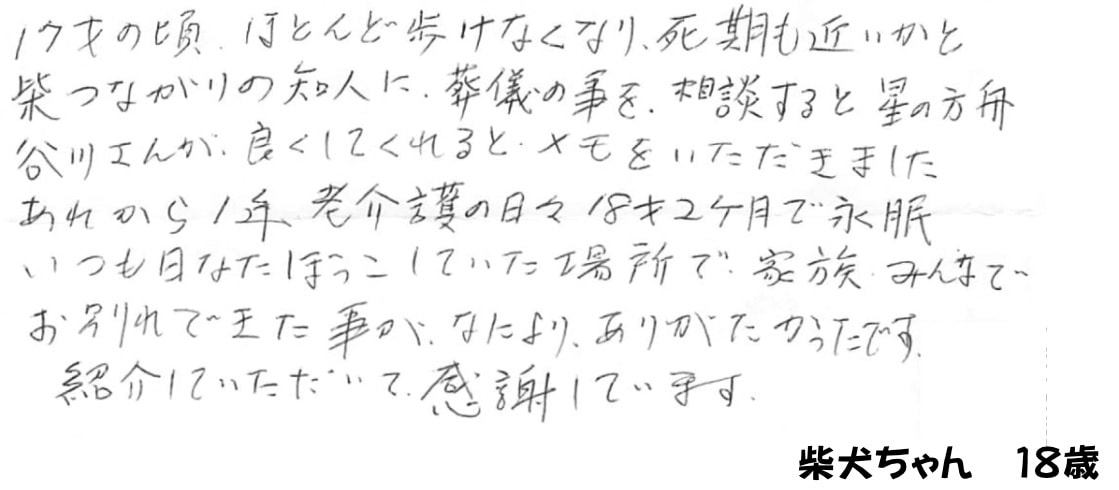 17才の頃、ほとんど歩けなくなり、死期も近いかと
柴つながりの知人に、葬儀の事を、相談すると星の方舟
谷川さんが、良くしてくれると、メモをいただきました
あれから1年、老介護の日々18才2ケ月で永眠
いつも日なたぼっこしていた場所で、家族、みんなで
お別れできた事が、なにより、ありがたかったです。
紹介していただいて、感謝しています。
柴犬ちゃん 18歳